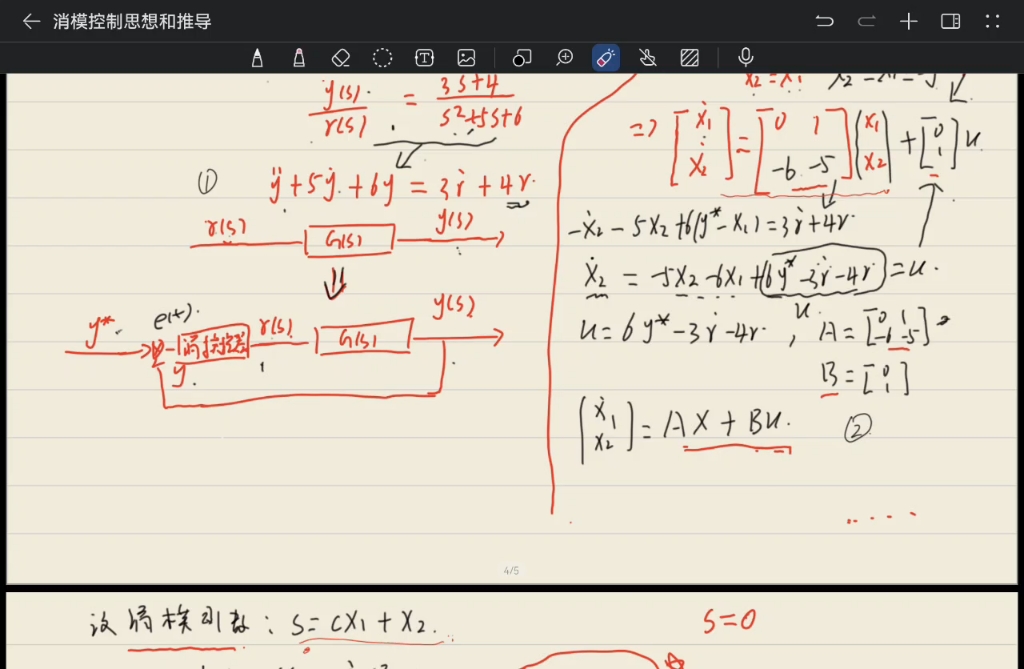 消模控制思想和推导
y(s)/r(s) = (3s+4)/(s²+5s+6)
① ÿ+5ẏ+6y = 3ṙ+4r
r(s) G(s) y(s)
y* e(t) r(s) G(s) y(s)
y
ẋ₂ = ẍ₁
=> [ẋ₁ ẋ₂] = [0 1 -6 -5] [x₁ x₂] + [0 1] u
-ẋ₂ - 5x₂ + 6(y*-x₁) = 3ṙ+4r
ẋ₂ = -5x₂ - 6x₁ + 6y* - 3ṙ - 4r = u
u
u = 6y* - 3ṙ - 4r , A = [0 1 -6 -5]
B = [0 1]
[ẋ₁ ẋ₂] = AX + Bu. ②
4/5
设滑模函数: s = cx₁ + x₂. s=0